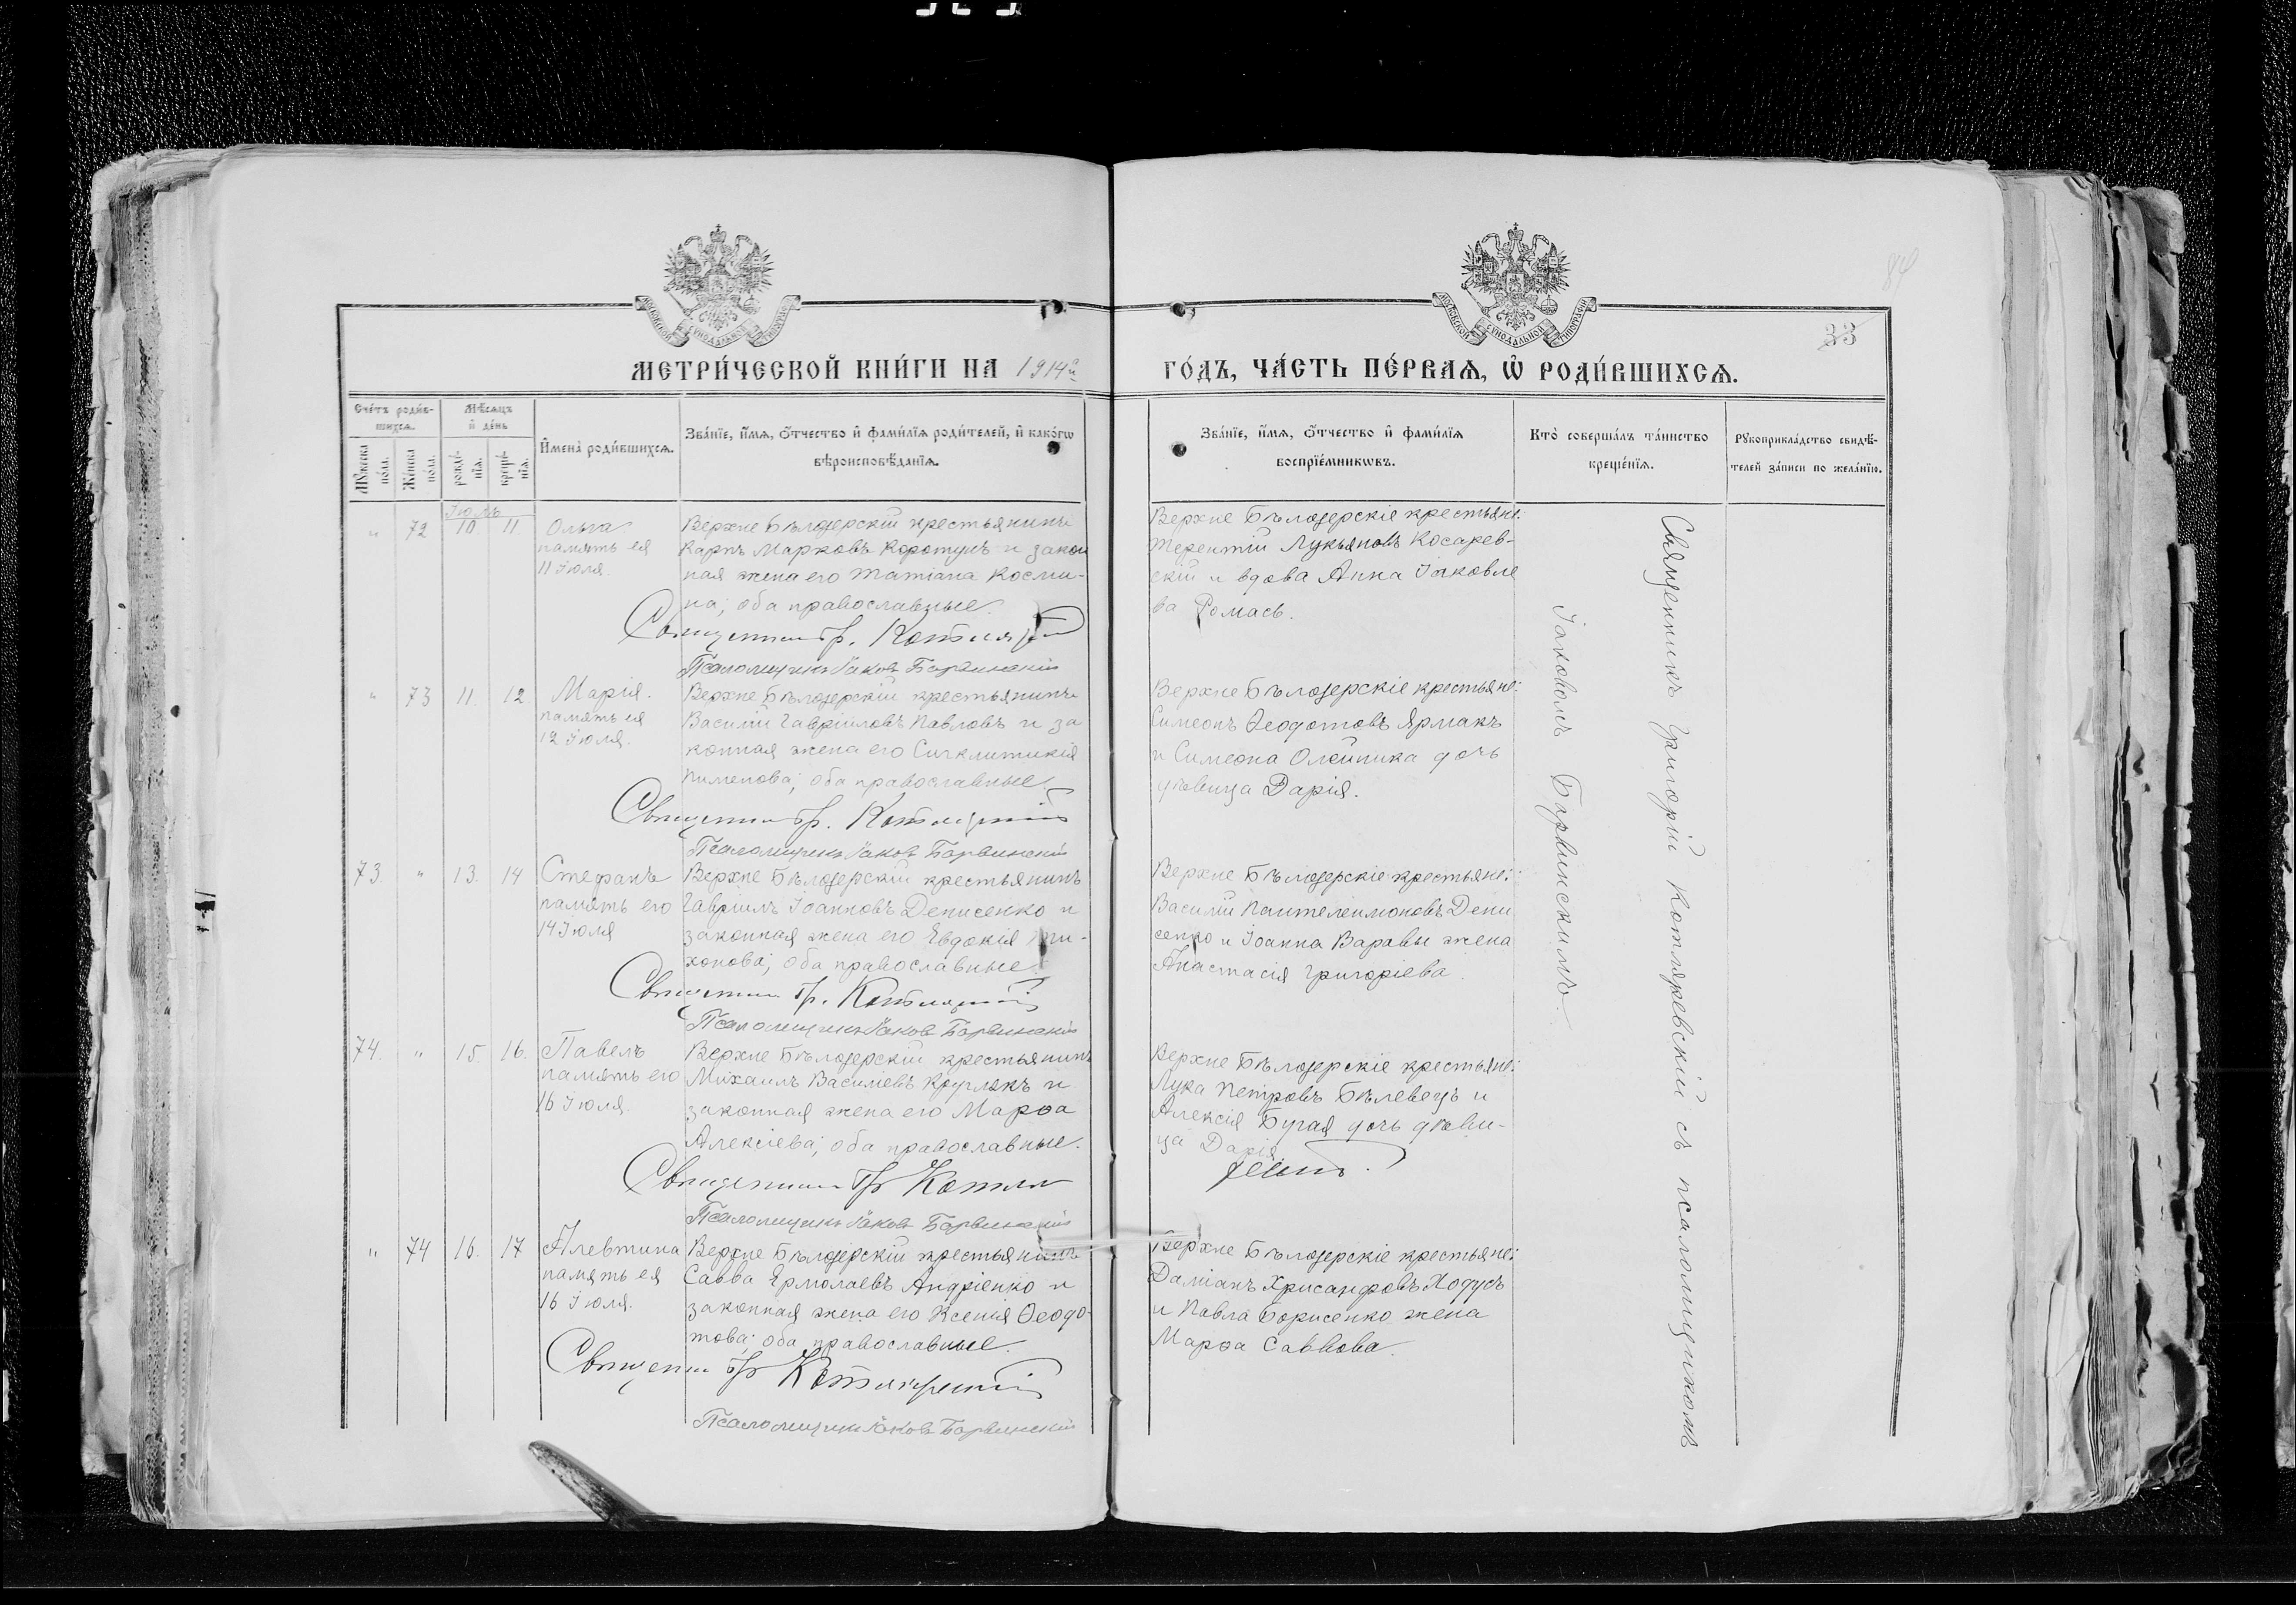 84
33
МЕТРИ́ЧЕСКОЙ КНИ́ГИ НА 1914й
ГО́ДЪ, ЧА́СТЬ ПЕ́РВАѦ, Ѡ҆ РОДИ́ВШИХСѦ.
Сче́тъ роди́в-
шихсѧ.
Мѣ́сѧцъ
и҆ де́нь
Мꙋ́жеска
по́ла.
Же́нска
по́ла.
рожде́-
нїѧ.
креще́-
нїѧ.
И҆мена̀ роди́вшихсѧ.
Зва́нїе, и҆́мѧ, ѻ҆́тчество и҆ фами́лїѧ роди́телей, и҆ како́гѡ
вѣроисповѣ́данїѧ.
Зва́нїе, и҆́мѧ, ѻ҆́тчество и҆ фами́лїѧ
воспрїе́мникѡвъ.
Кто̀ соверша́лъ та́инство
креще́нїѧ.
Рꙋкоприкла́дство свидѣ́-
телей за́писи по жела́нїю.
Іюль
" 72 10. 11. Ольга
память ея
11 Іюля.
Верхне Бѣлозерскій крестьянинъ
Карпъ Марковъ Коротунъ и закон
ная жена его Татіана Косми-
на; оба православные.
Священникъ Гр.
Псаломщикъ Іаковъ Барвинскій
Верхне Бѣлозерскіе крестьяне:
Терентій Лукьяновъ Косарев-
скій и вдова Анна Іаковле
ва Ромась.
" 73 11. 12 Марія.
память ея
12 Іюля.
Верхне Бѣлозерскій крестьянинъ
Василій Гавріиловъ Павловъ и за
конная жена его Синклитикія
Пименова; оба православные.
Священникъ Гр. Котляревскій
Псаломщикъ Іаковъ Барвинскій
Верхне Бѣлозерскіе крестьяне:
Симеонъ Ѳеодотовъ Ярмакъ
и Симеона Олейника дочь
дѣвица Дарія.
73. " 13. 14 Стефанъ
память его
14 Іюля
Верхне Бѣлозерскій крестьянинъ
Гавріилъ Іоанновъ Денисенко и
законная жена его Евдокія Ти-
хонова; оба православные.
Священникъ Гр. Котляревскій
Псаломщикъ Іаковъ Барвинскій
Верхне Бѣлозерскіе крестьяне:
Василій Пантелеимоновъ Дени
сенко и Іоанна Варавы жена
Анастасія Григоріева.
74. " 15. 16. Павелъ
память его
16 Іюля.
Верхне Бѣлозерскій крестьянинъ
Михаилъ Василіевъ и
законная жена его Марѳа
Алексіева; оба православные.
Священникъ Гр Котля
Псаломщикъ Іаковъ Барвинскій
Верхне Бѣлозерскіе крестьяне:
Лука Петровъ Бѣлевецъ и
Алексія Бугая дочь дѣви-
ца Дарія.
" 74 16. 17 Алевтина
память ея
16 Іюля.
Верхне Бѣлозерскій крестьянинъ
Савва Ермолаевъ Андріенко и
законная жена его Ксенія Ѳеодо-
това; оба православные.
Священни Гр Котляревскій
Псаломщикъ Іаковъ Барвинскій
Верхне Бѣлозерскіе крестьяне:
Даміанъ Хрисанфовъ Ходусъ
и Павла Борисенко жена
Марѳа Саввова.
Священникъ Григорій Котляревскій съ псаломщикомъ
Іаковомъ Барвинскимъ.